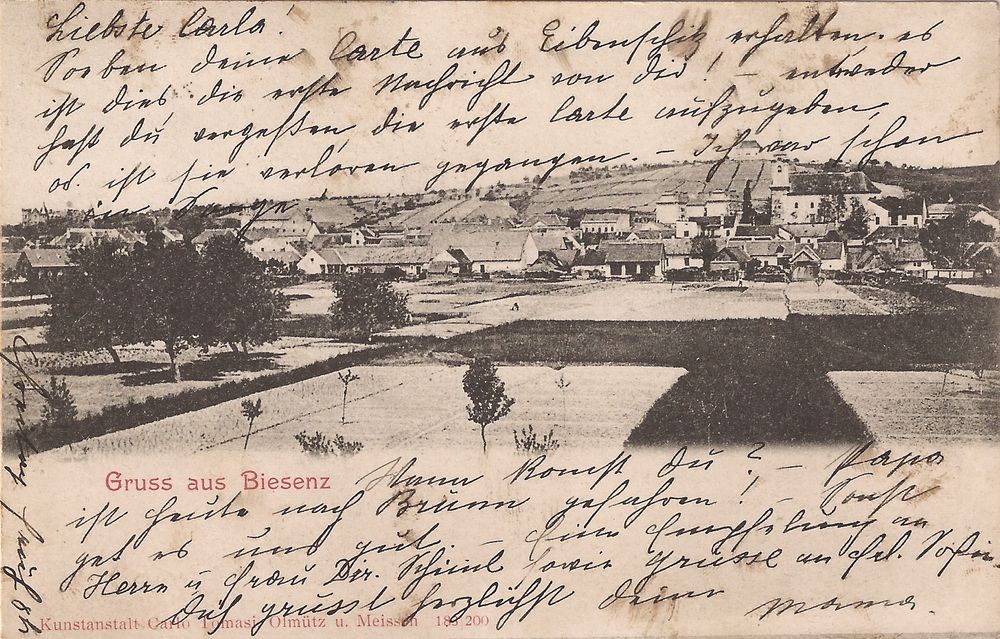 Liebste Carla!
Soeben deine Carte aus Eibenschitz erhalten. es
ist dies die erste Nachricht von dir! – entweder
hast du vergessen, die erste Carte aufzugeben,
od. ist sie verloren gegangen. – Ich war schon
in Sorge
Gruss aus Biesenz
Wann komst du? – Papa
ist heute nach Brünn gefahren! – Sonst
get es uns gut. – Eine Empfelung an
Herrn u Frau Dir. Schiml sowie Grüsse an Frl. Sofie.
Dich grüsst herzlichst deine Mama.
Kunstanstalt Carlo Tomasi Olmütz u. Meissen 185 200